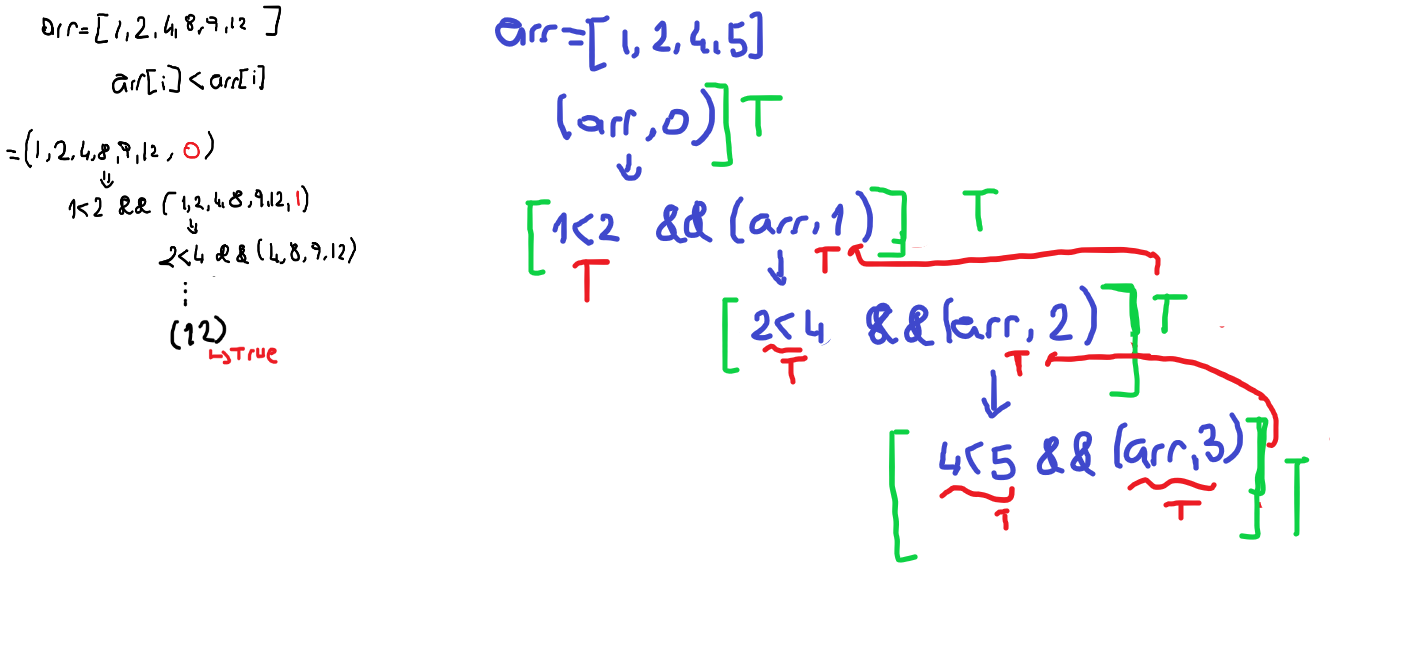 arr=[1,2,4,8,9,12 ]
arr[i]<arr[i]
=(1,2,4,8,9,12, 0)
⇓
1<2 && (1,2,4,8,9,12,1)
⇓
2<4 && (4,8,9,12)
⋮
(12)
↳True
arr=[1,2,4,5]
(arr,0)] T
↓
[1<2 && (arr,1)] T
T T
↓
[2<4 &&(arr,2)] T
T T
↓
[4<5 && (arr,3)] T
T T